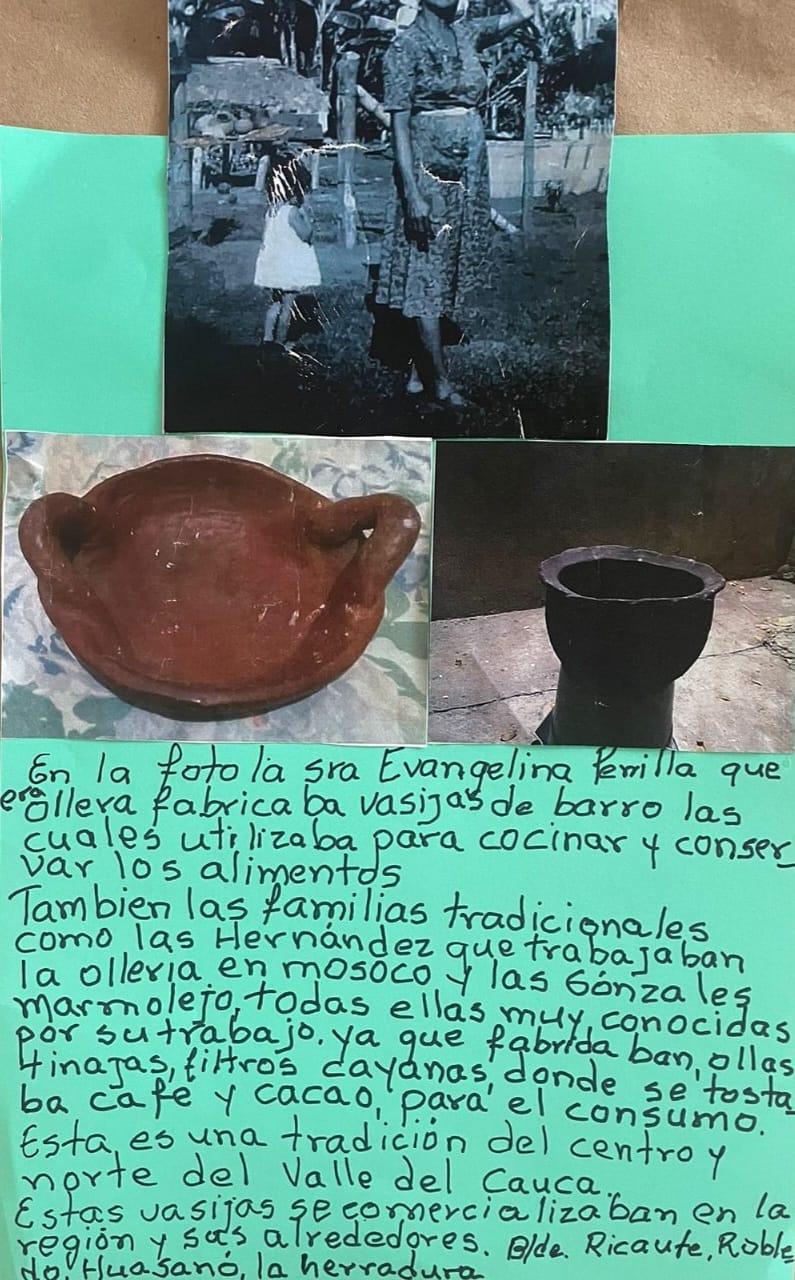 En la foto la sra Evangelina Perrilla que
era ollera fabricaba vasijas de barro las
cuales utilizaba para cocinar y conser_
var los alimentos
Tambien las familias tradicionales
como las Hernández que trabajaban
la olleria en mosoco y las Gónzales
marmolejo, todas ellas muy conocidas
por su trabajo. ya que fabrida ban, ollas
tinajas, filtros cayanas, donde se tosta
ba café y cacao, para el consumo.
Esta es una tradición del centro y
norte del Valle del Cauca.
Estas vasijas se comercializaban en la
región y sus alrededores. Ricaute, Roble
do, Huasanó, la herradura